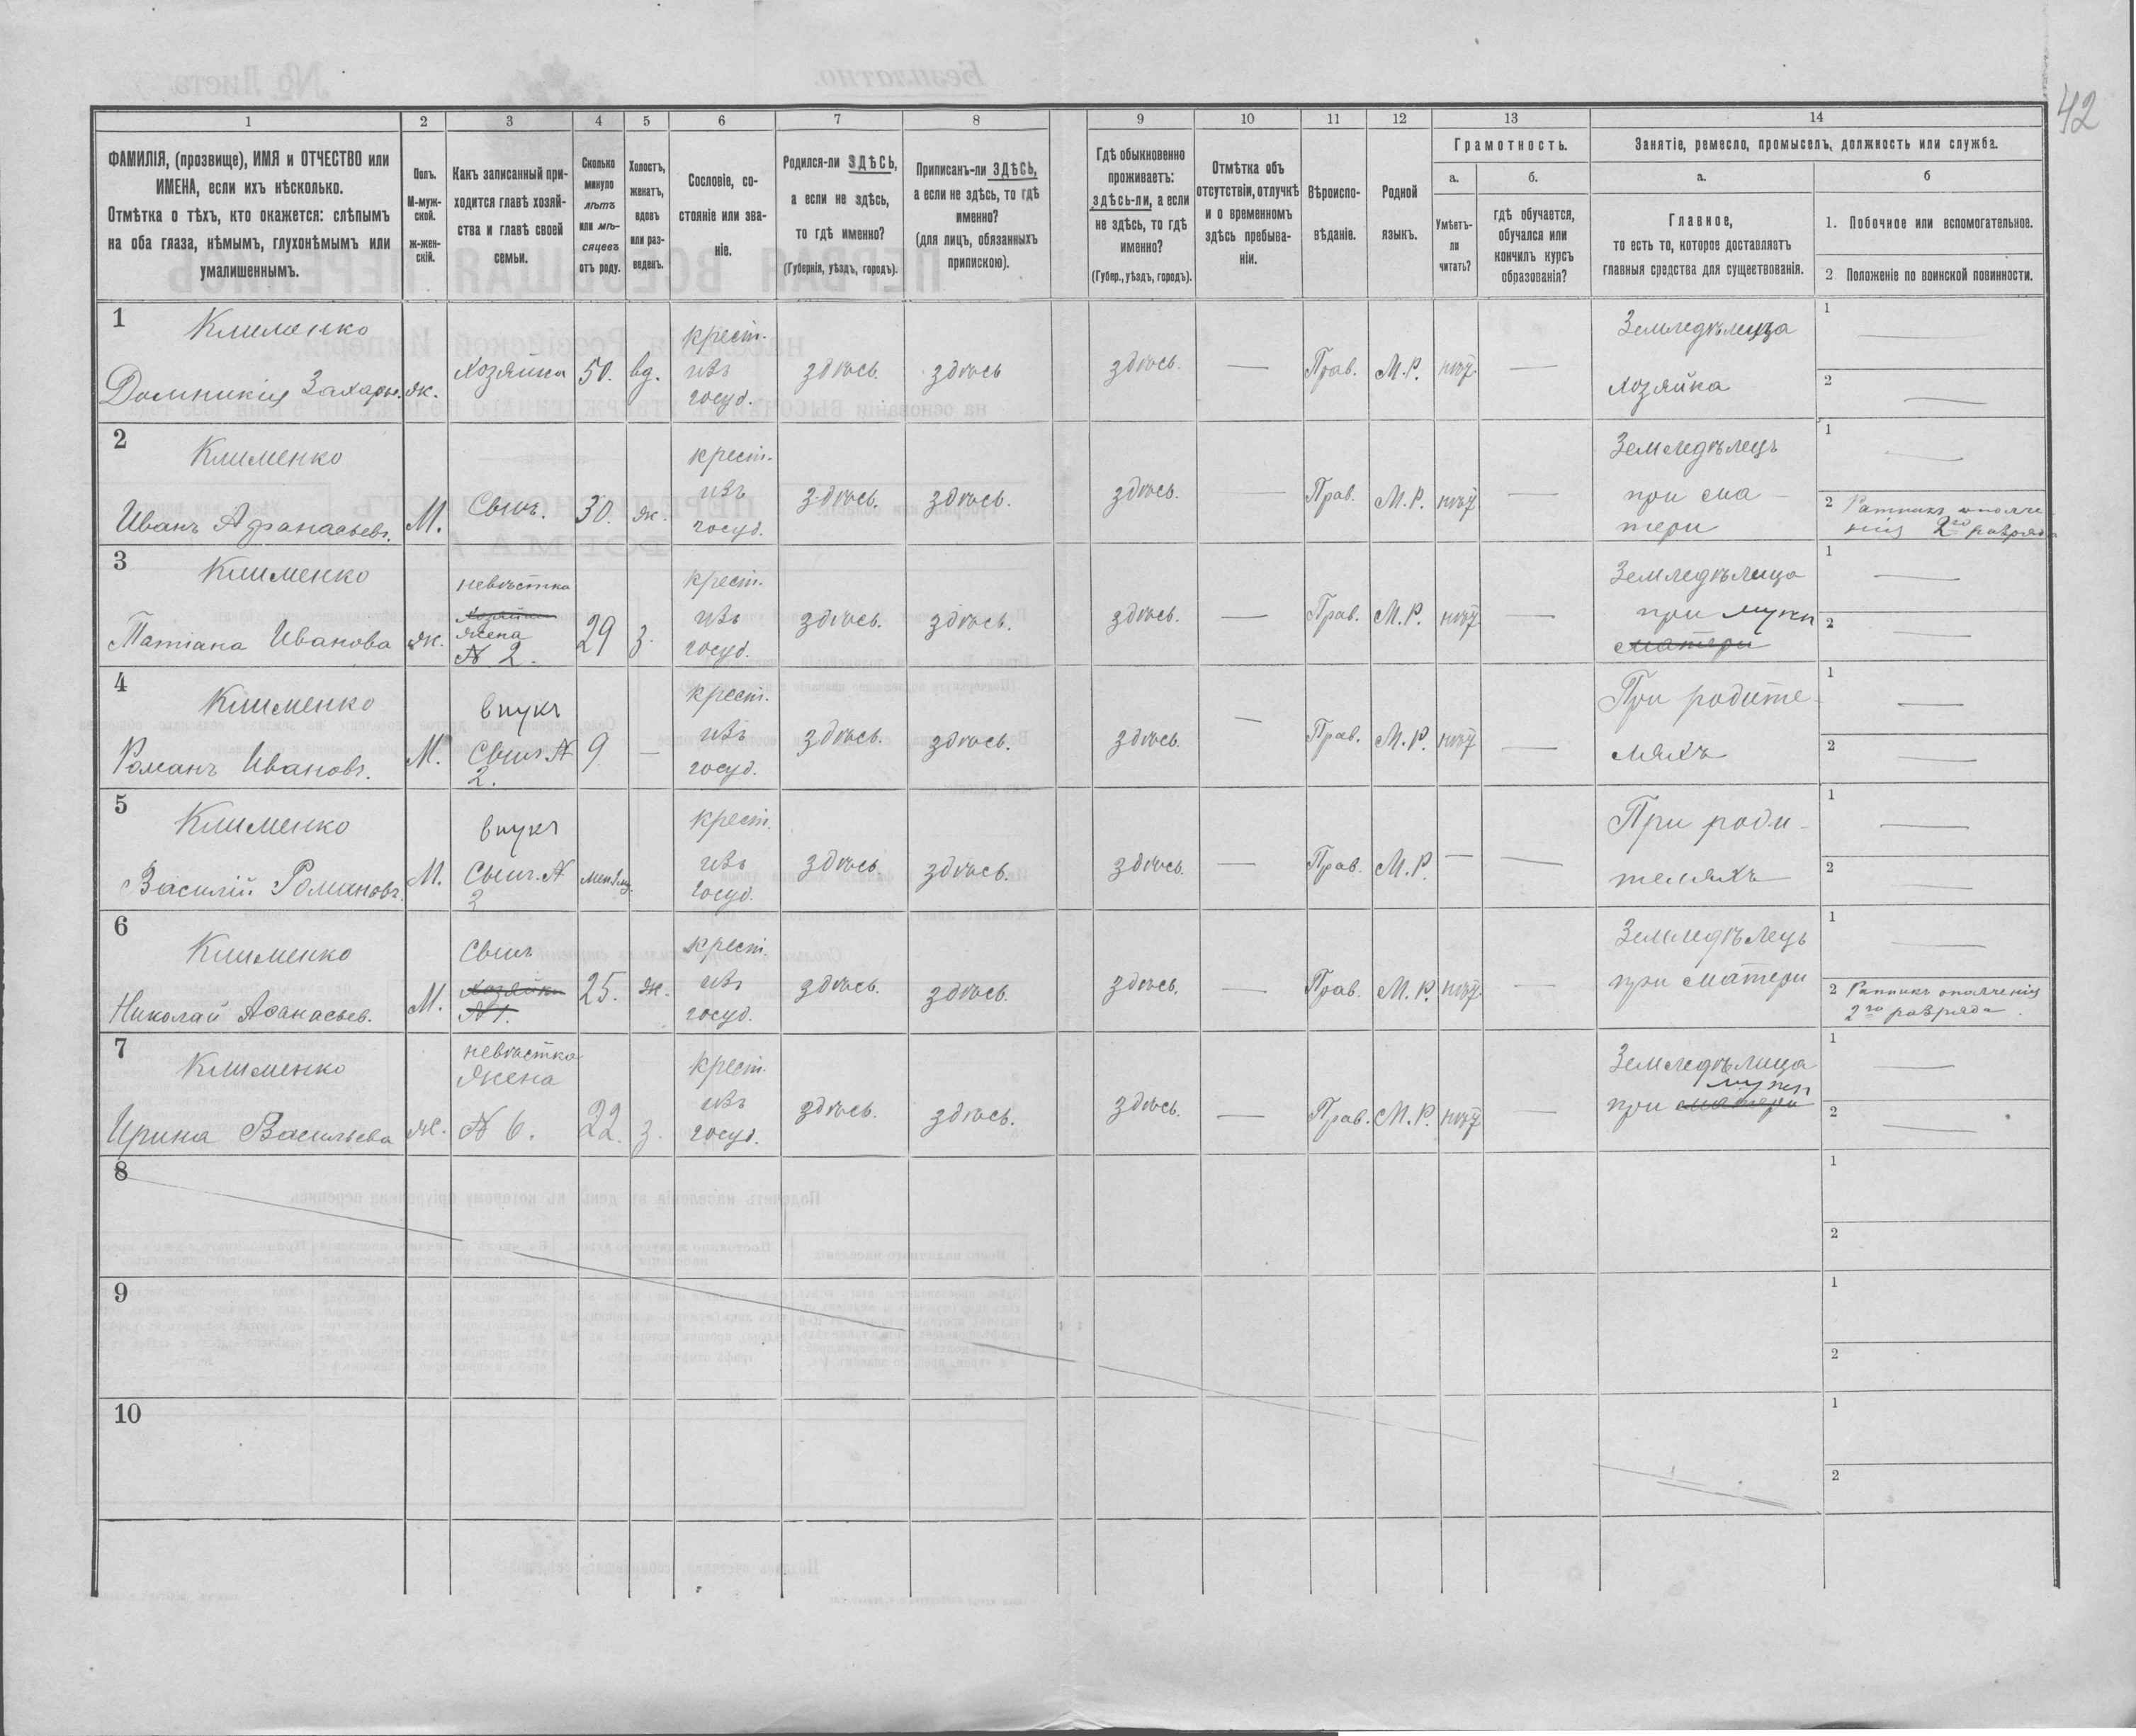 42
1 2 3 4 5 6 7 8 9 10 11 12 13 14
ФАМИЛІЯ, (прозвище), ИМЯ и ОТЧЕСТВО или
ИМЕНА, если ихъ нѣсколько.
Отмѣтка о тѣхъ, кто окажется: слѣпымъ
на оба глаза, нѣмымъ, глухонѣмымъ или
умалишеннымъ.
Полъ.
М-муж-
ской.
ж-жен-
скій.
Какъ записанный при-
ходится главѣ хозяй-
ства и главѣ своей
семьи.
Сколько
минуло
лѣтъ
или мѣ-
сяцевъ
отъ роду.
Холостъ,
женатъ,
вдовъ
или раз-
веденъ.
Сословіе, со-
стояніе или зва-
ніе.
Родился-ли ЗДѢСЬ,
а если не здѣсь,
то гдѣ именно?
(Губернія, уѣздъ, городъ).
Приписанъ-ли ЗДѢСЬ,
а если не здѣсь, то гдѣ
именно?
(для лицъ, обязанныхъ
припискою).
Гдѣ обыкновенно
проживаетъ:
здѣсь-ли, а если
не здѣсь, то гдѣ
именно?
(Губер., уѣздъ, городъ).
Отмѣтка объ
отсутствіи, отлучкѣ
и о временномъ
здѣсь пребыва-
ніи.
Вѣроиспо-
вѣданіе.
Родной
языкъ.
Грамотность.
а.
Умѣетъ-
ли
читать?
б.
гдѣ обучается,
обучался или
кончилъ курсъ
образованія?
Занятіе, ремесло, промыселъ, должность или служба.
а.
Главное,
то есть то, которое доставляетъ
главныя средства для существованія.
б
1. Побочное или вспомогательное.
2. Положеніе по воинской повинности.
1
Клименко
Домникія Захарьев.
ж.
Хозяйка
50.
вд.
крест.
изъ
госуд.
здѣсь.
здѣсь
здѣсь.
—
Прав.
М.Р.
нѣт
—
Земледѣлица
хозяйка
1 —
2 —
2
Клименко
Иванъ Афанасьевъ.
М.
Сынъ.
30.
ж.
крест.
изъ
госуд.
здѣсь.
здѣсь.
здѣсь.
—
Прав.
М.Р.
нѣт
—
Земледѣлецъ
при ма-
тери
1 —
2 Ратникъ ополче
нія 2го разряда
3
Клименко
Татіана Иванова
ж.
невѣстка
хозяйки
жена
№ 2.
29
з.
крест.
изъ
госуд.
здѣсь.
здѣсь.
здѣсь.
—
Прав.
М.Р.
нѣт
—
Земледѣлица
при мужѣ
матери
1 —
2 —
4
Клименко
Романъ Ивановъ.
М.
внукъ
Сынъ №
2.
9
—
крест.
изъ
госуд.
здѣсь.
здѣсь.
здѣсь.
—
Прав.
М.Р.
нѣт
—
При родите-
ляхъ
1 —
2 —
5
Клименко
Василій Романовъ.
М.
внукъ
Сынъ. №
2
крест.
изъ
госуд.
здѣсь.
здѣсь.
здѣсь
—
Прав.
М.Р.
—
—
При роди-
теляхъ
1 —
2 —
6
Клименко
Николай Афанасьев.
М.
Сынъ
хозяйки
№ 1.
25.
ж.
крест.
изъ
госуд.
здѣсь.
здѣсь.
здѣсь.
—
Прав.
М.Р.
нѣт
—
Земледѣлецъ
при матери
1 —
2 Ратникъ ополченія
2го разряда.
7
Клименко
Ирина Васильева
ж.
невѣстка
Жена
№ 6.
22.
з.
крест.
изъ
госуд.
здѣсь.
здѣсь.
здѣсь.
—
Прав.
М.Р.
нѣт
—
Земледѣлица
мужѣ
при матери
1 —
2 —
8
1
2
9
1
2
10
1
2